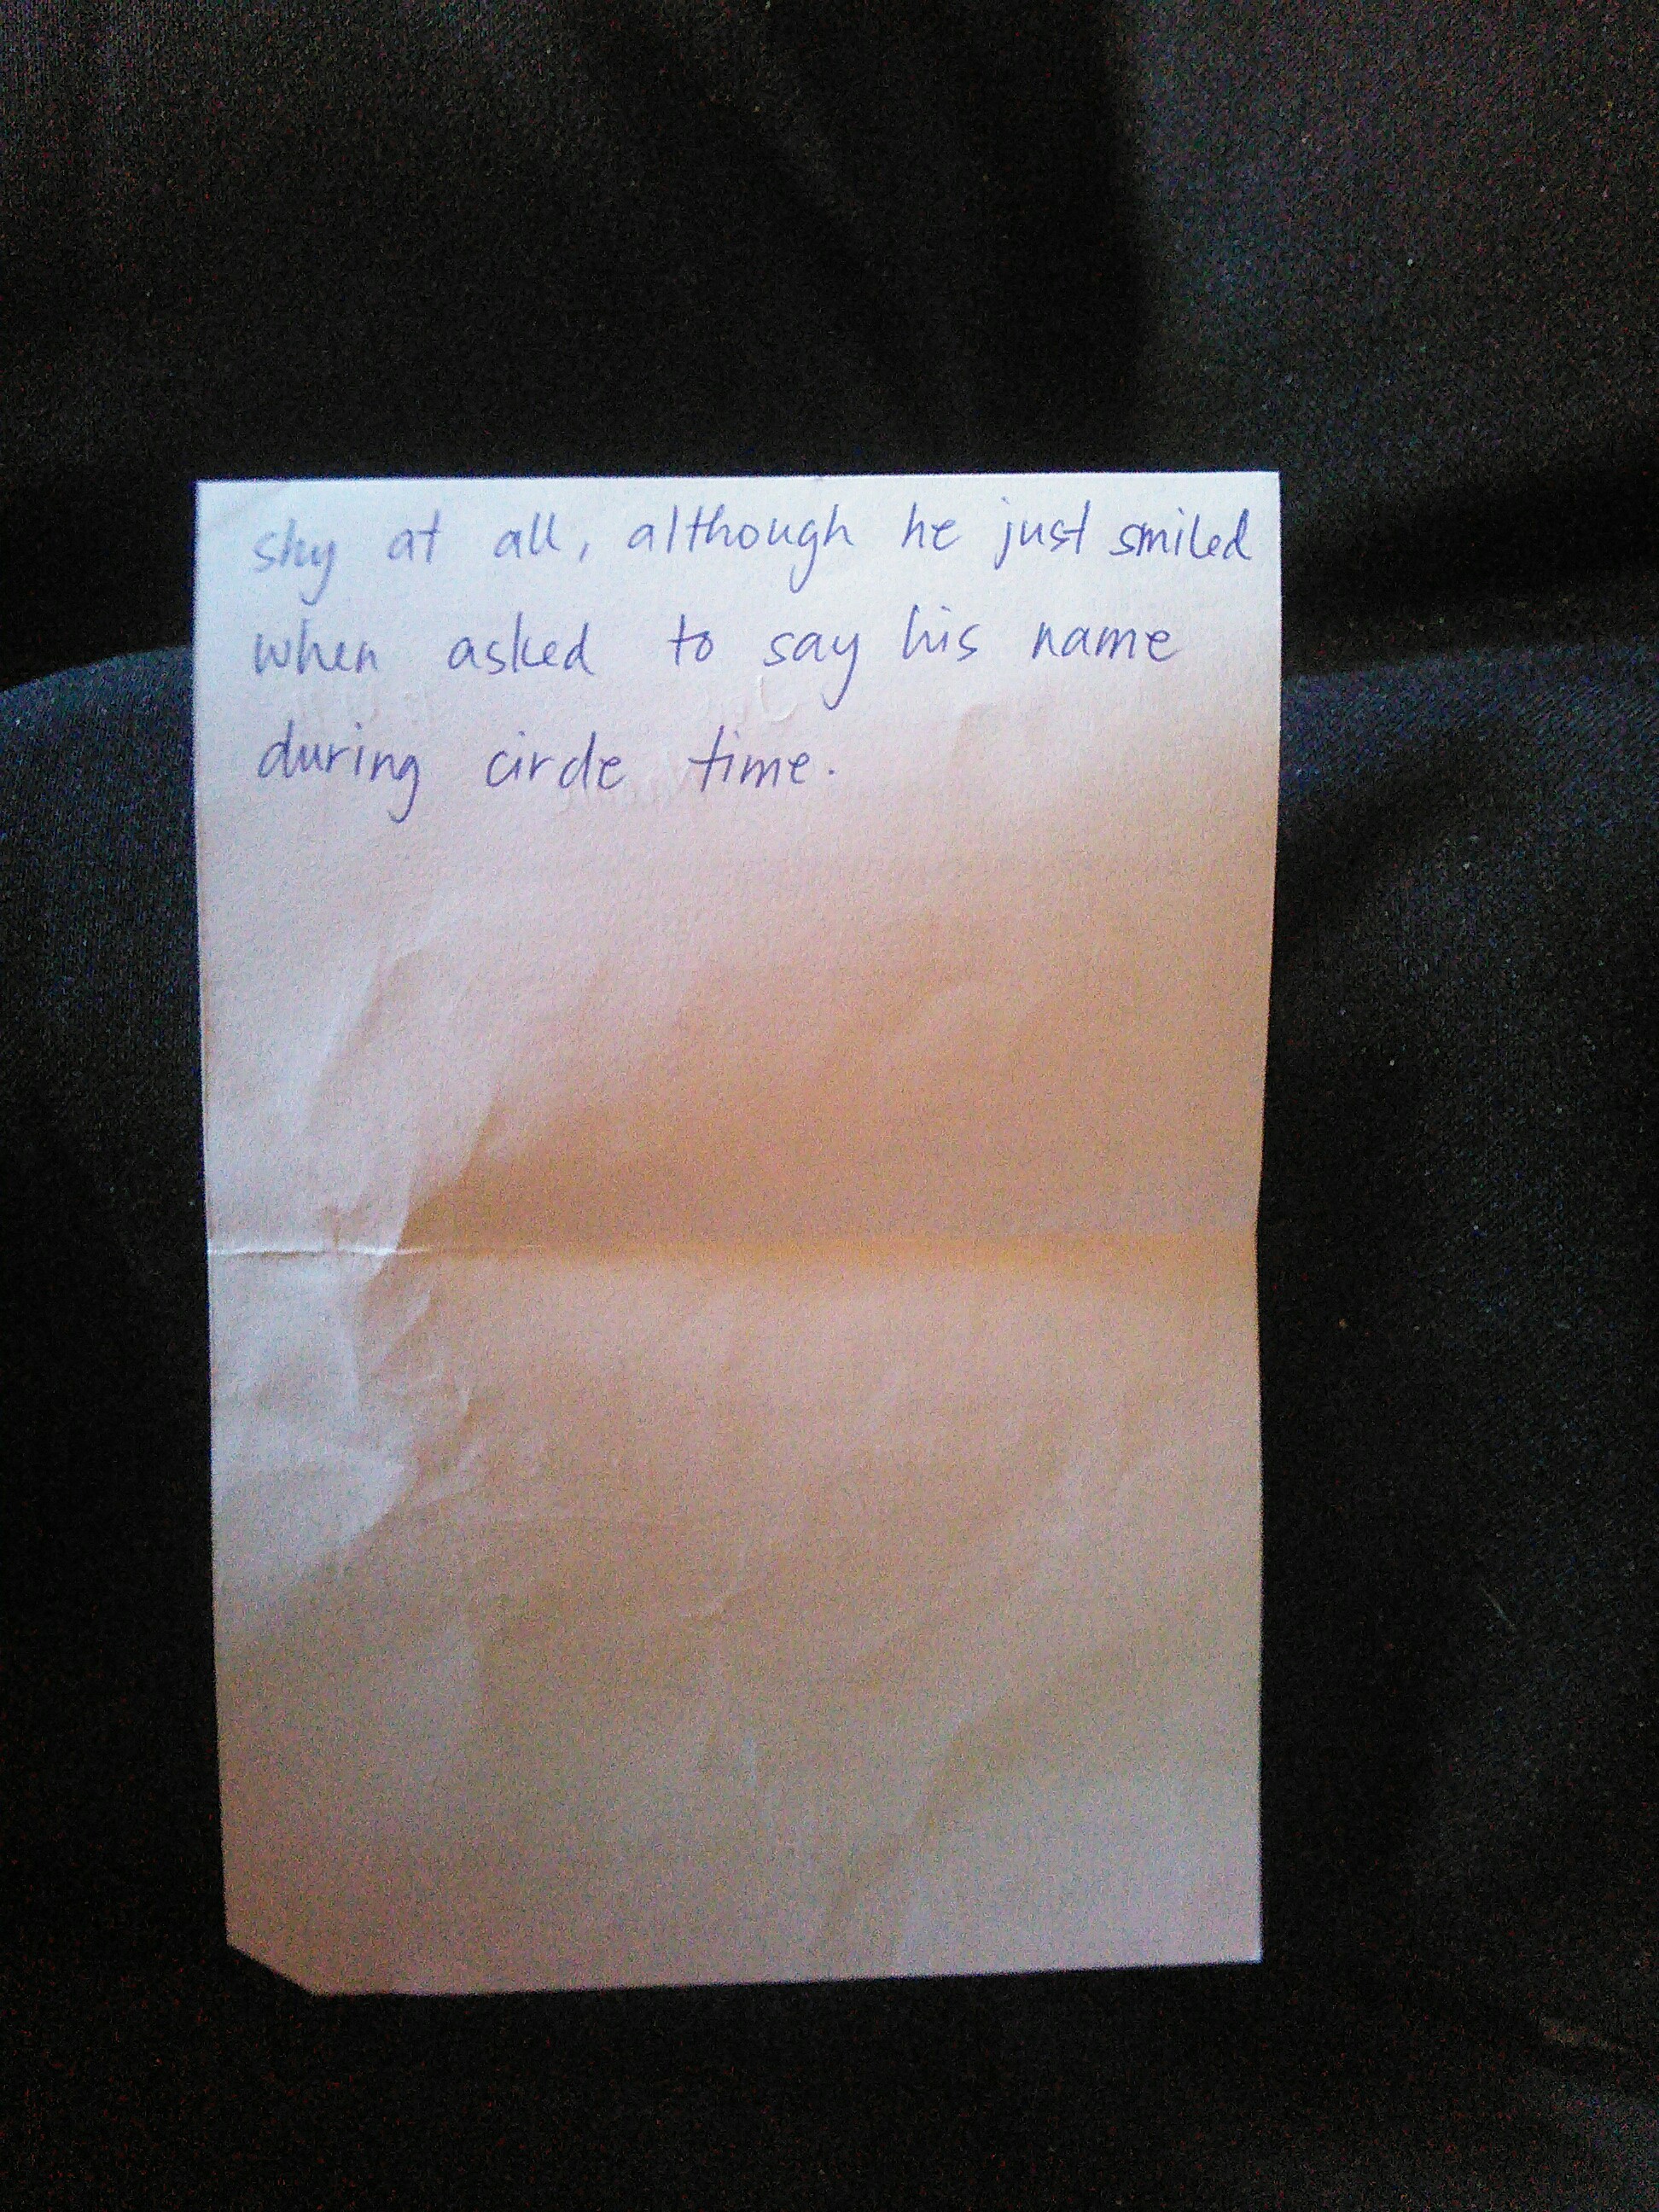 shy at all, although he just smiled
when asked to say his name
during circle time.